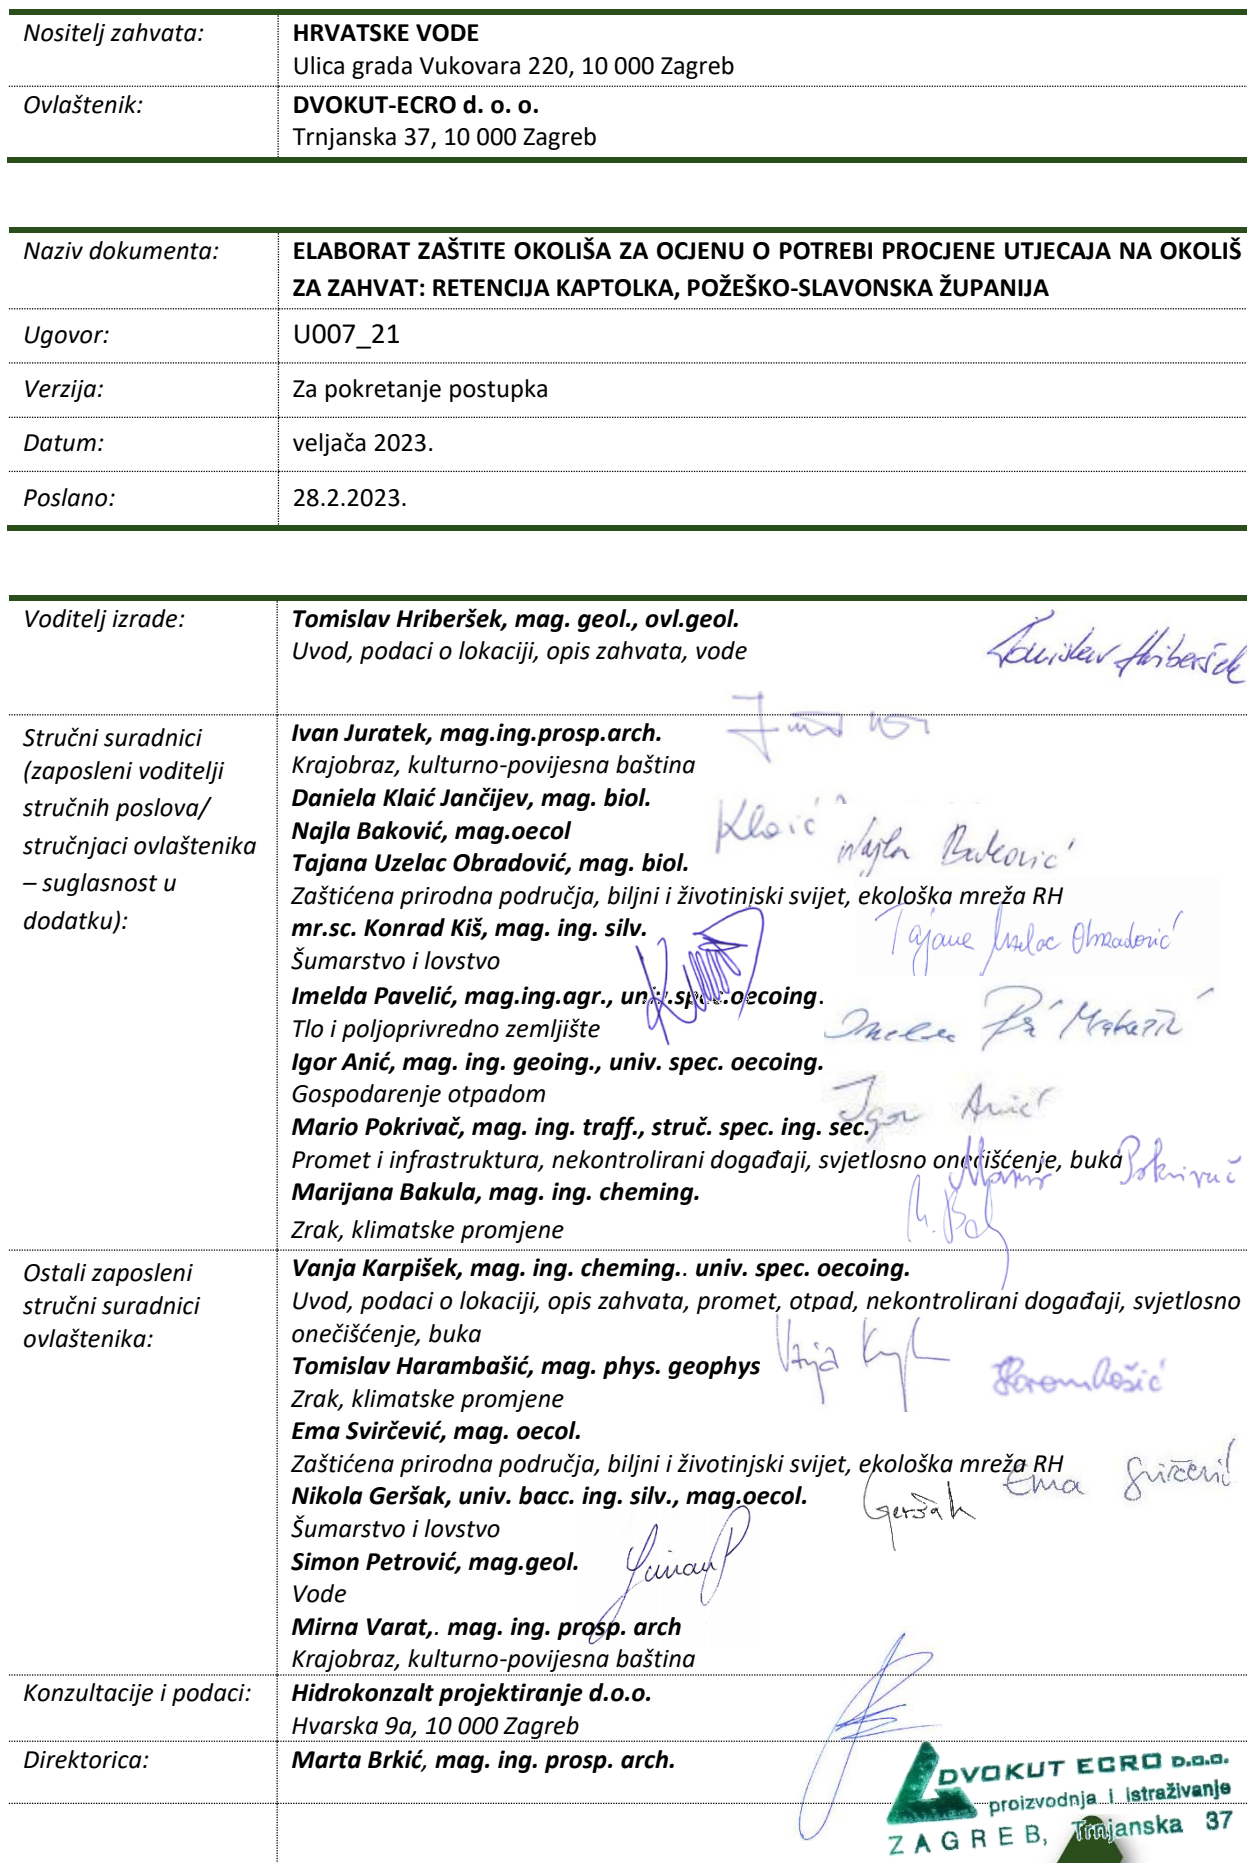 Nositelj zahvata: HRVATSKE VODE
Ulica grada Vukovara 220, 10 000 Zagreb
Ovlaštenik: DVOKUT-ECRO d. o. o.
Trnjanska 37, 10 000 Zagreb
Naziv dokumenta: ELABORAT ZAŠTITE OKOLIŠA ZA OCJENU O POTREBI PROCJENE UTJECAJA NA OKOLIŠ
ZA ZAHVAT: RETENCIJA KAPTOLKA, POŽEŠKO-SLAVONSKA ŽUPANIJA
Ugovor: U007_21
Verzija: Za pokretanje postupka
Datum: veljača 2023.
Poslano: 28.2.2023.
Voditelj izrade: Tomislav Hriberšek, mag. geol., ovl.geol.
Uvod, podaci o lokaciji, opis zahvata, vode
Tomislav Hriberšek
Stručni suradnici
(zaposleni voditelji
stručnih poslova/
stručnjaci ovlaštenika
– suglasnost u
dodatku):
Ivan Juratek, mag.ing.prosp.arch.
Krajobraz, kulturno-povijesna baština
Daniela Klaić Jančijev, mag. biol.
Klaić
Najla Baković, mag.oecol
Najla Baković
Tajana Uzelac Obradović, mag. biol.
Zaštićena prirodna područja, biljni i životinjski svijet, ekološka mreža RH
Tajana Uzelac Obradović
mr.sc. Konrad Kiš, mag. ing. silv.
Šumarstvo i lovstvo
Imelda Pavelić, mag.ing.agr., univ.spec.oecoing.
Tlo i poljoprivredno zemljište
Igor Anić, mag. ing. geoing., univ. spec. oecoing.
Gospodarenje otpadom
Igor Anić
Mario Pokrivač, mag. ing. traff., struč. spec. ing. sec.
Promet i infrastruktura, nekontrolirani događaji, svjetlosno onečišćenje, buka
Mario Pokrivač
Marijana Bakula, mag. ing. cheming.
Zrak, klimatske promjene
Ostali zaposleni
stručni suradnici
ovlaštenika:
Vanja Karpišek, mag. ing. cheming.. univ. spec. oecoing.
Uvod, podaci o lokaciji, opis zahvata, promet, otpad, nekontrolirani događaji, svjetlosno
onečišćenje, buka
Tomislav Harambašić, mag. phys. geophys
Harambašić
Zrak, klimatske promjene
Ema Svirčević, mag. oecol.
Zaštićena prirodna područja, biljni i životinjski svijet, ekološka mreža RH
Ema Svirčević
Nikola Geršak, univ. bacc. ing. silv., mag.oecol.
Geršak
Šumarstvo i lovstvo
Simon Petrović, mag.geol.
Simon P
Vode
Mirna Varat,. mag. ing. prosp. arch
Krajobraz, kulturno-povijesna baština
Konzultacije i podaci: Hidrokonzalt projektiranje d.o.o.
Hvarska 9a, 10 000 Zagreb
Direktorica: Marta Brkić, mag. ing. prosp. arch.
DVOKUT ECRO D.O.O.
proizvodnja i istraživanje
ZAGREB, Trnjanska 37